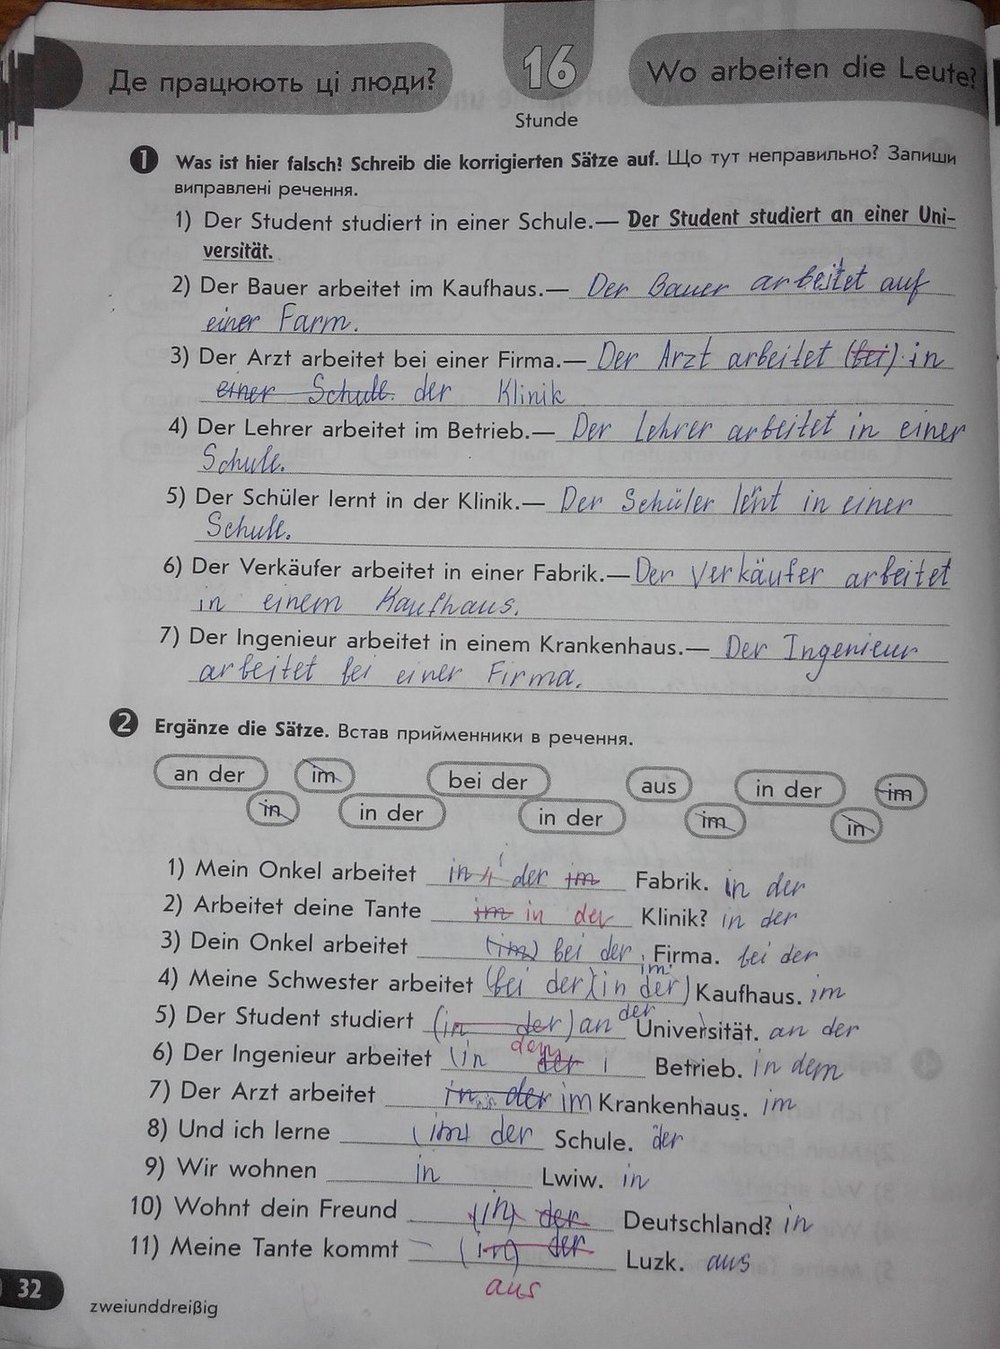 Де працюють ці люди?
16
Stunde
Wo arbeiten die Leute?
1 Was ist hier falsch? Schreib die korrigierten Sätze auf. Що тут неправильно? Запиши
виправлені речення.
1) Der Student studiert in einer Schule.— Der Student studiert an einer Uni-
versität.
2) Der Bauer arbeitet im Kaufhaus.— Der Bauer arbeitet auf
einer Farm.
3) Der Arzt arbeitet bei einer Firma.— Der Arzt arbeitet (bei) in
einer Schule. der Klinik
4) Der Lehrer arbeitet im Betrieb.— Der Lehrer arbeitet in einer
Schule.
5) Der Schüler lernt in der Klinik.— Der Schüler lernt in einer
Schule.
6) Der Verkäufer arbeitet in einer Fabrik.— Der Verkäufer arbeitet
in einem Kaufhaus.
7) Der Ingenieur arbeitet in einem Krankenhaus.— Der Ingenieur
arbeitet bei einer Firma.
2 Ergänze die Sätze. Встав прийменники в речення.
an der im bei der aus in der im
in in der in der im in
1) Mein Onkel arbeitet in der im Fabrik. in der
2) Arbeitet deine Tante im in der Klinik? in der
3) Dein Onkel arbeitet (im) bei der Firma. bei der
4) Meine Schwester arbeitet (bei der) (in der) im Kaufhaus. im
5) Der Student studiert (in der) an der Universität. an der
6) Der Ingenieur arbeitet (in der dem Betrieb. in dem
7) Der Arzt arbeitet in der im Krankenhaus. im
8) Und ich lerne (im) der Schule. der
9) Wir wohnen in Lwiw. in
10) Wohnt dein Freund (in) der Deutschland? in
11) Meine Tante kommt (in) der Luzk. aus
aus
32
zweiunddreißig